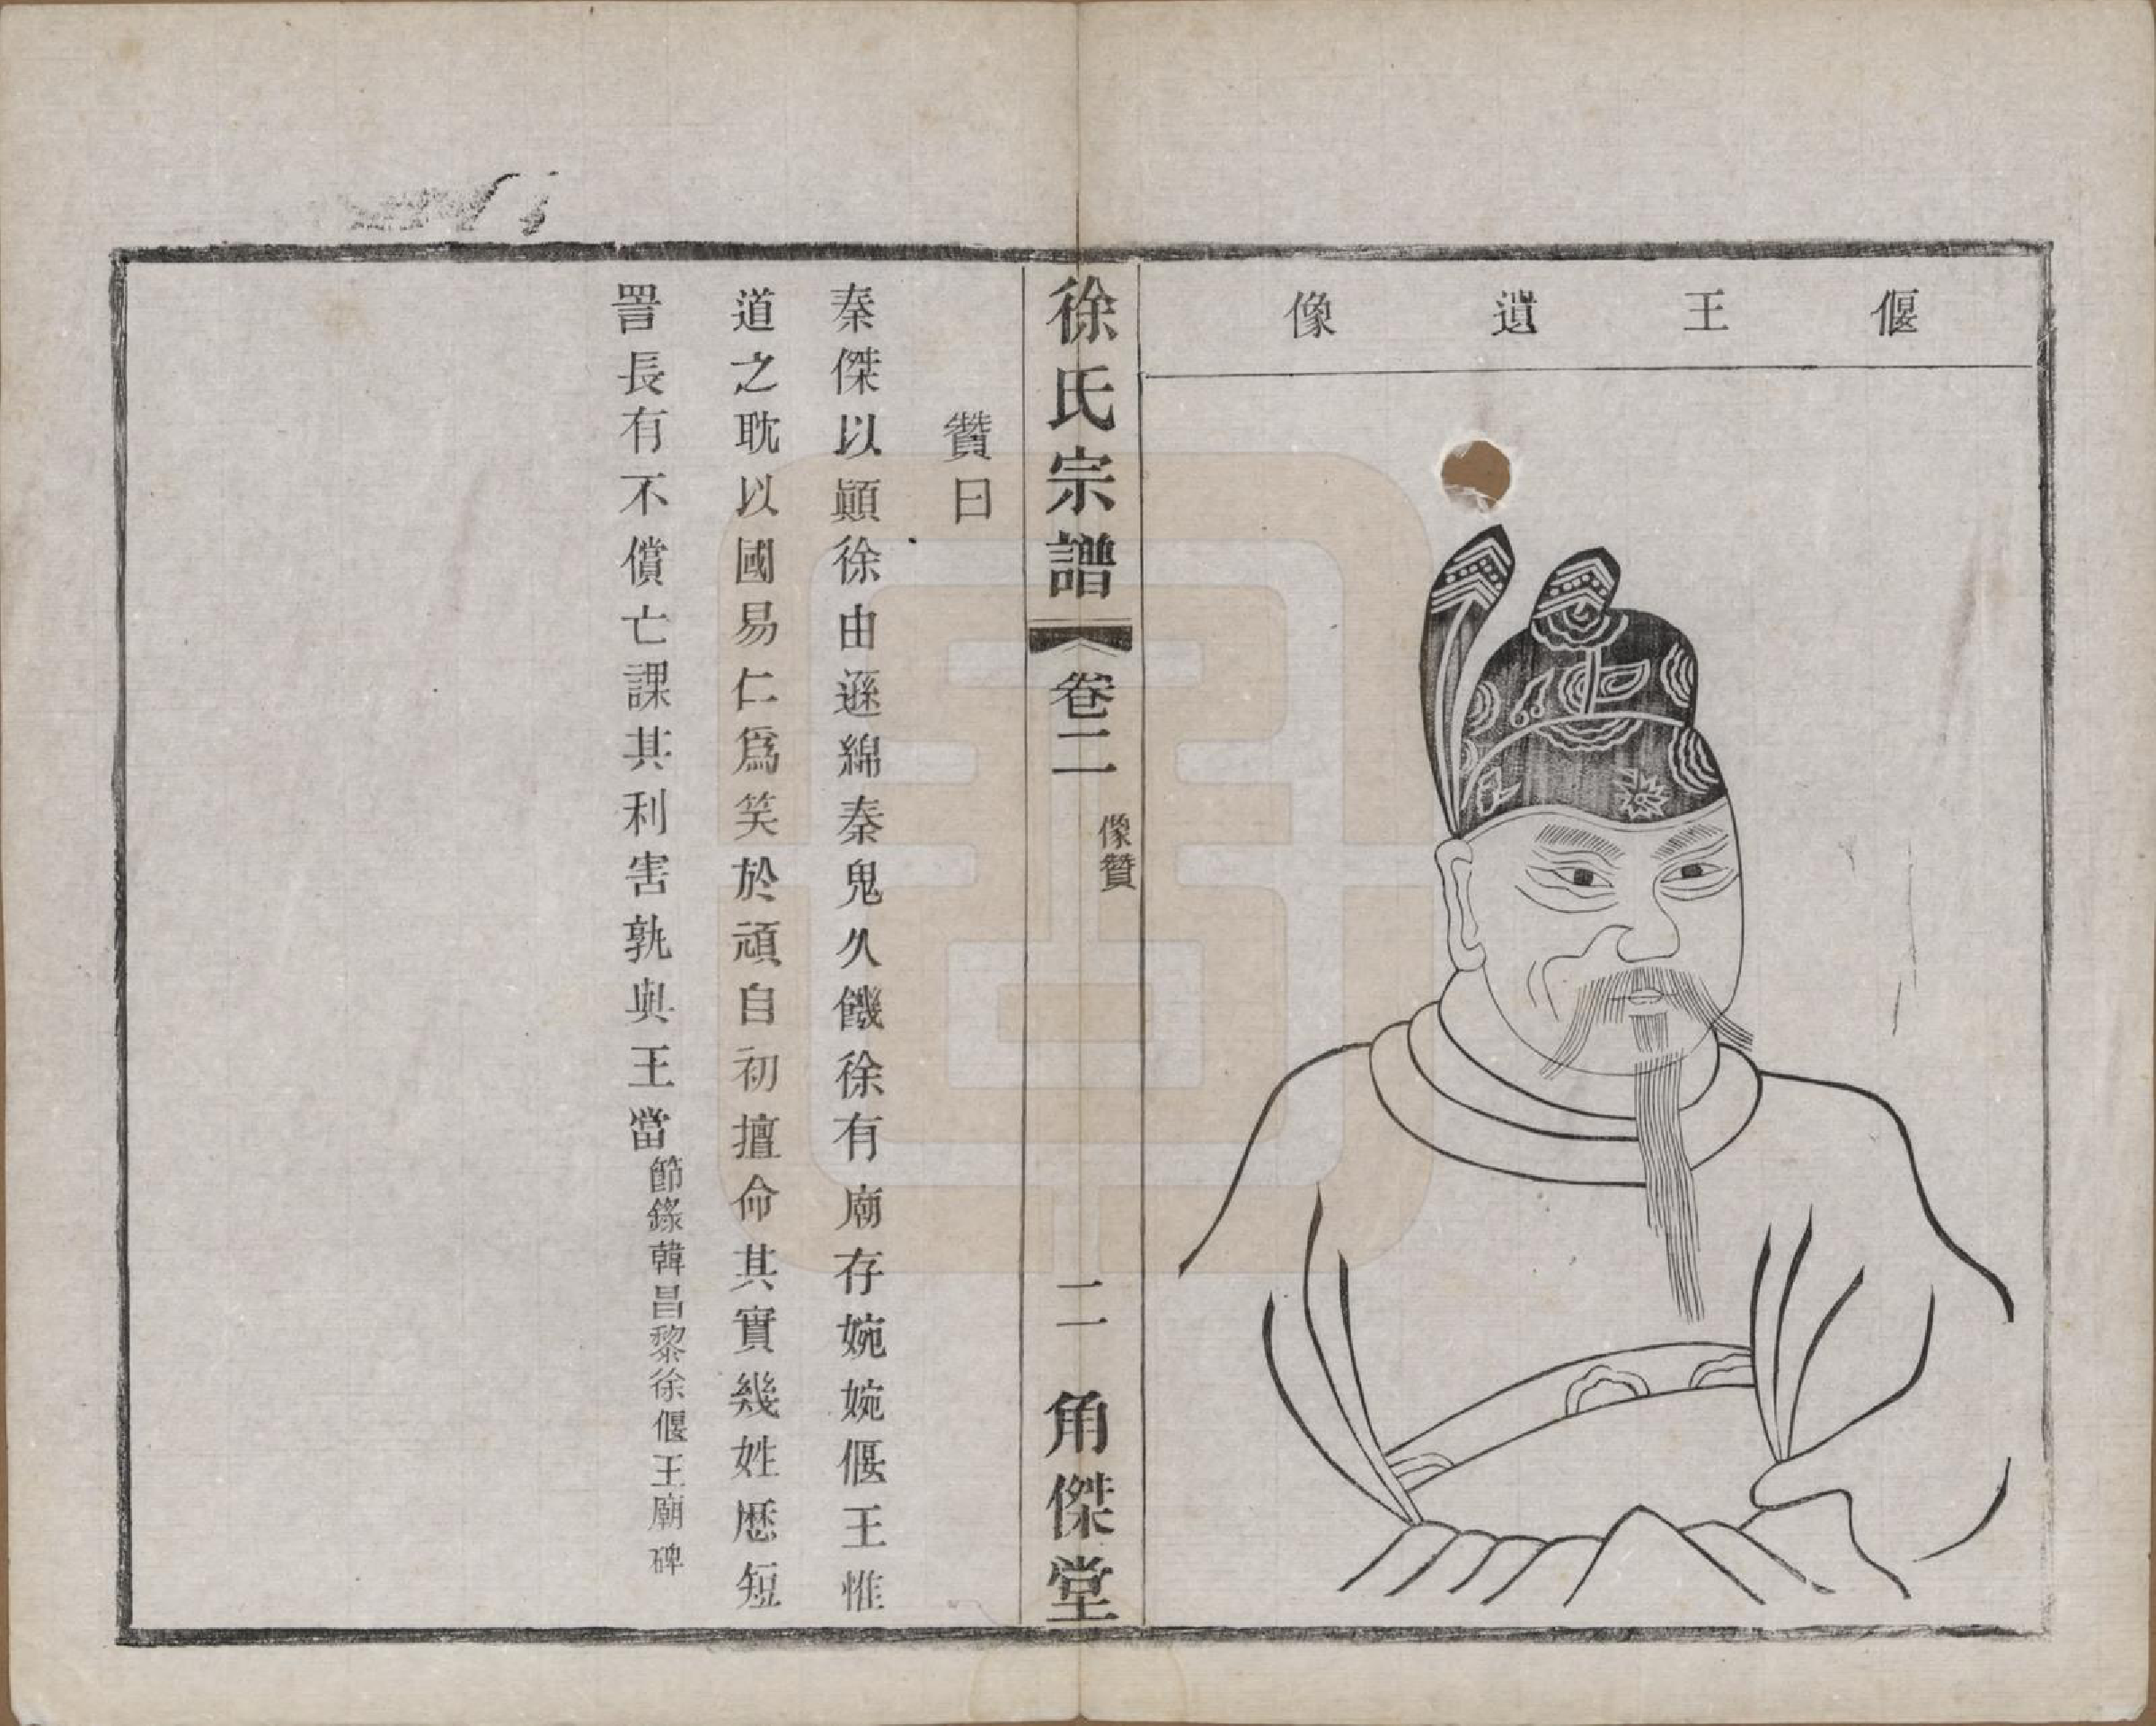 偃王遺像
徐氏宗譜
卷二
像贊
二
角傑堂
贊曰
秦傑以顚徐由遜綿秦鬼久饑徐有廟存婉婉偃王惟
道之耽以國易仁爲笑於頑自初擅命其實幾姓歷短
詈長有不償亡課其利害孰與王當
節錄韓昌黎徐偃王廟碑